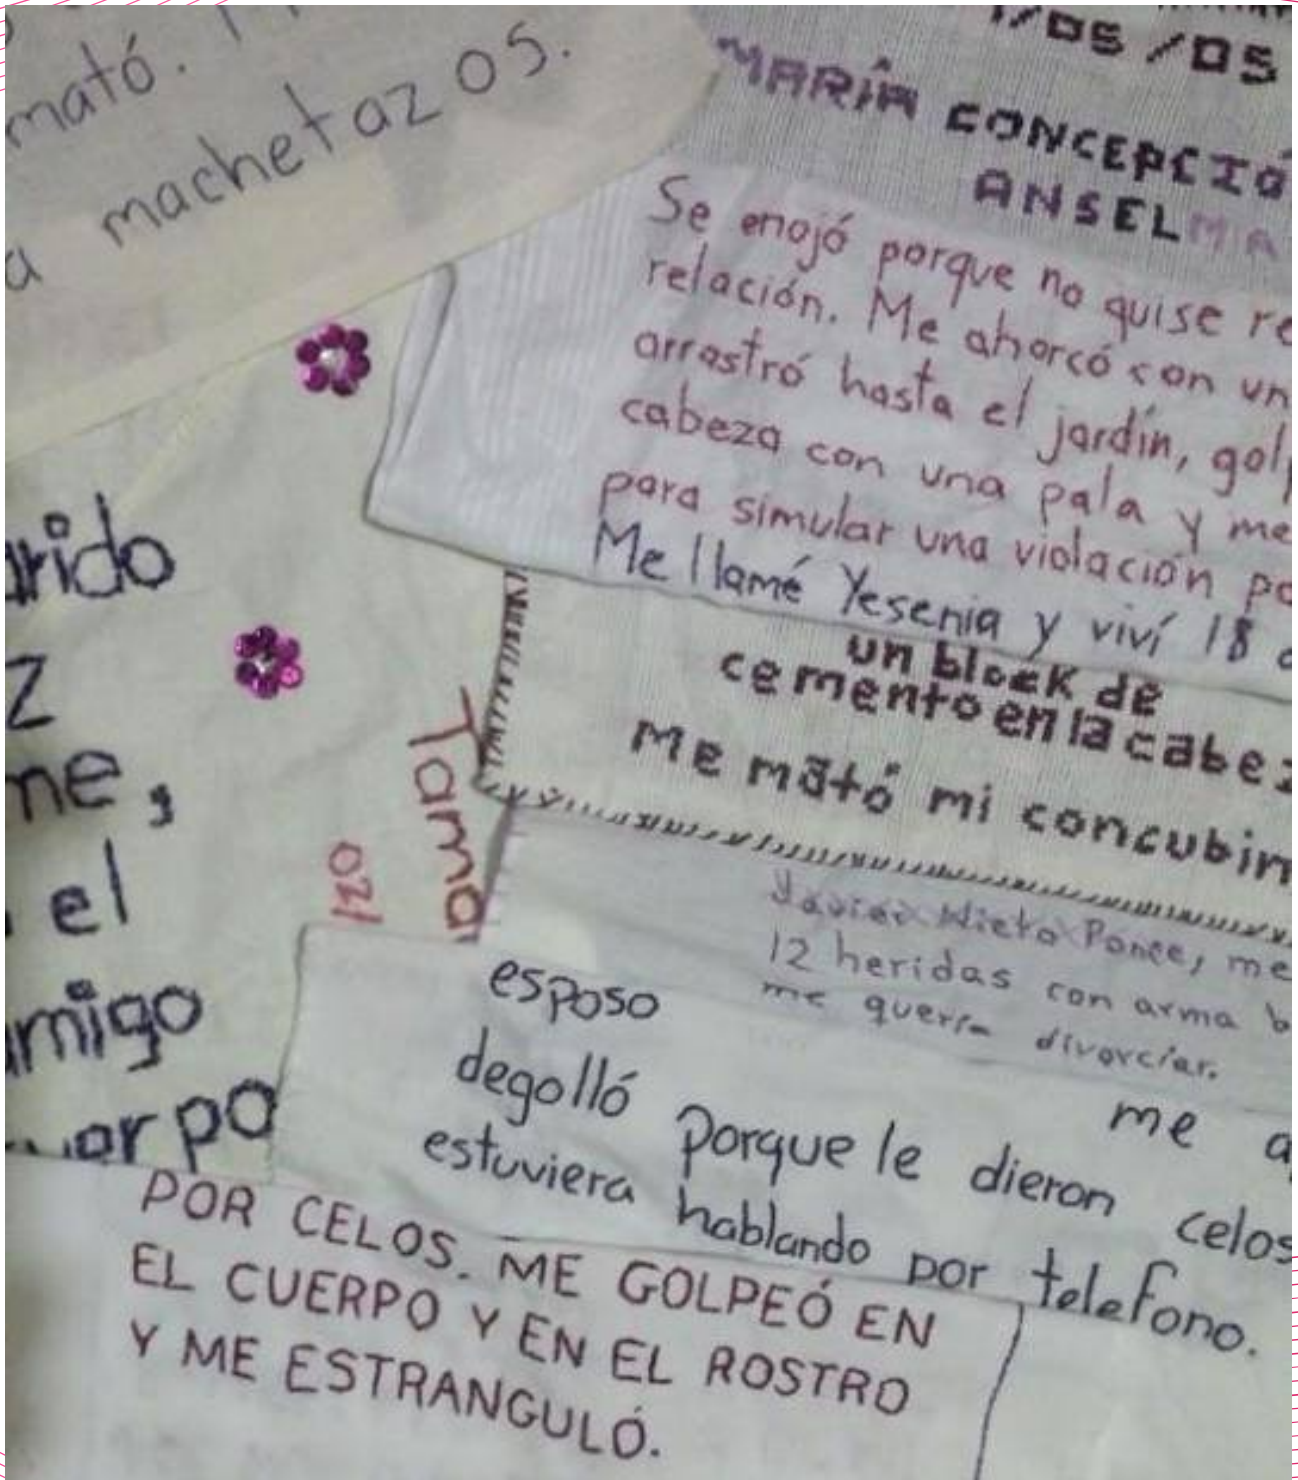 mató.
a machetazos.
/05/05
MARÍA CONCEPCIÓ
ANSELMA
Se enojó porque no quise re
relación. Me ahorcó con un
arrastró hasta el jardín, golp
cabeza con una pala y me
para simular una violación po
Me llamé Yesenia y viví 18 a
arido
z
me,
el
amigo
uerpo
Tama
un block de
cemento en la cabez
me mató mi concubin
Javier Nieto Ponce, me
12 heridas con arma b
me quería divorciar.
esposo
me a
degolló porque le dieron celos
estuviera hablando por telefono.
POR CELOS. ME GOLPEÓ EN
EL CUERPO Y EN EL ROSTRO
Y ME ESTRANGULÓ.